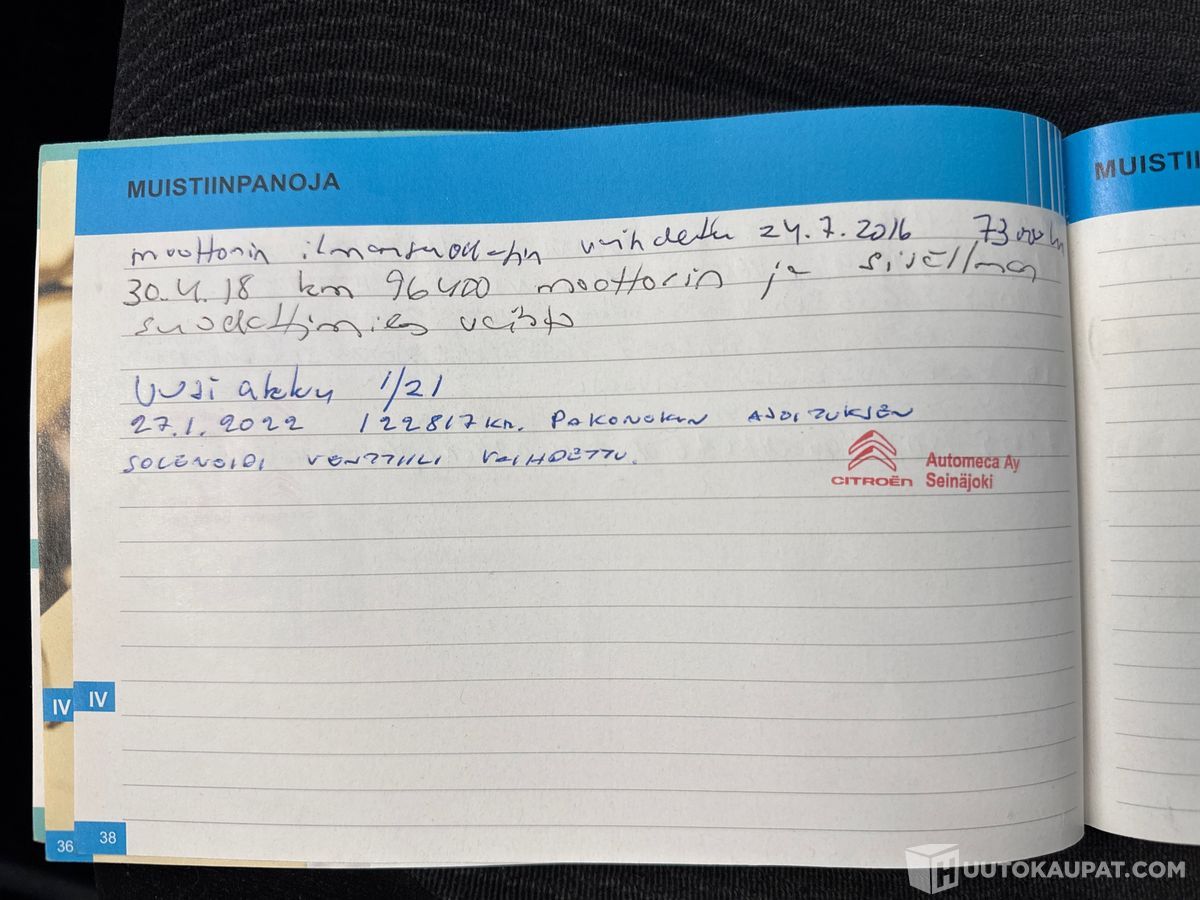 MUISTIINPANOJA
MUISTII
moottorin ilmansuodatin vaihdettu 24.7.2016 73000 km
30.4.18 km 96400 moottorin ja sisäilman
suodattimien vaihto
Uusi akku 1/21
27.1.2022 122817 km. PAKONOKAN AJOITUKSEN
SOLENOIDI VENTTIILI VAIHDETTU.
CITROËN Automeca Ay
Seinäjoki
IV IV
36 38
HUUTOKAUPAT.COM